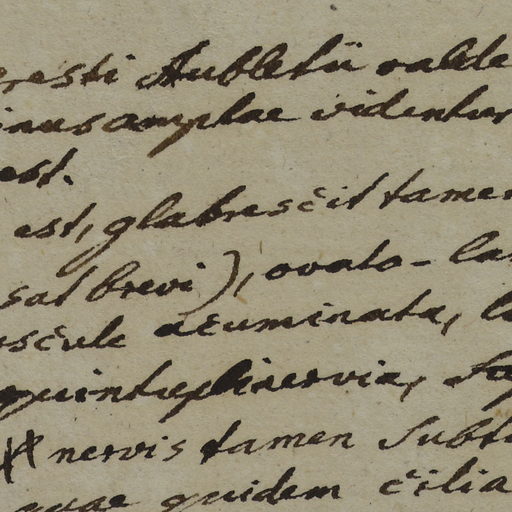 resti Aubletii valde
inus amplae videntur
est.
est, glabrescit tamen
sat brevi), ovato-la
uscule acuminata, l
quintuplinervia, su
nervis tamen subt
quae quidem cilia